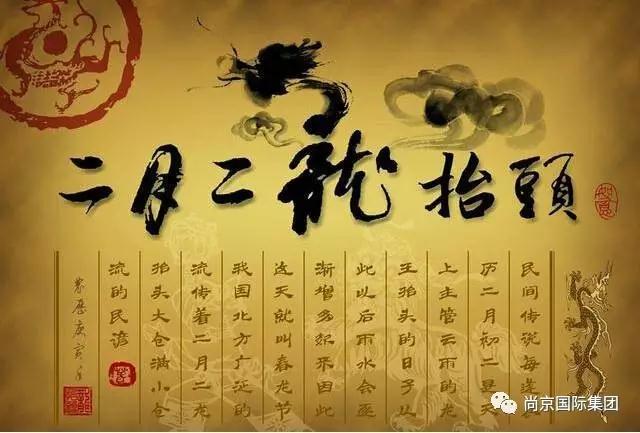 二月二龍抬頭
如意
民间传说每逢农
历二月初二是天
上主管云雨的龙
王抬头的日子从
此以后雨水会逐
渐增多起来因此
这天就叫春龙节
我国北方广泛的
流传着二月二龙
抬头大仓满小仓
流的民谚
农历庚寅年
尚京国际集团